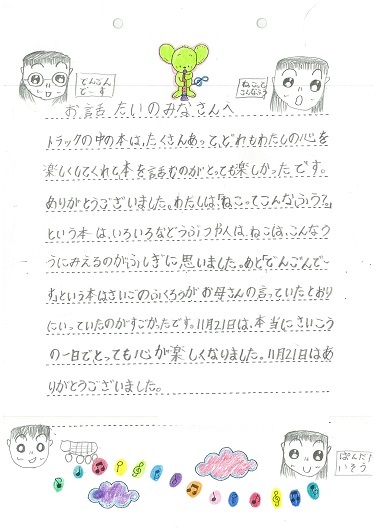 でんごん
でーす
ねこって
こんなふう
お話したいのみなさんへ
トラックの中の本は、たくさんあって、どれもわたしの心を
楽しくしてくれて本を話むのがとっても楽しかったです。
ありがとうございました。わたしは「ねこってこんなふう?」
という本は、いろいろなどうぶつや人は、ねこは、こんなふ
うにみえるのがふしぎに思いました。あと「でんごんで~
す」という本はさいごのふくろうがお母さんの言っていたとおり
にいっていたのがすごかったです。11月21日は、本当にさいこう
の一日でとっても心が楽しくなりました。11月21日はあ
りがとうございました。